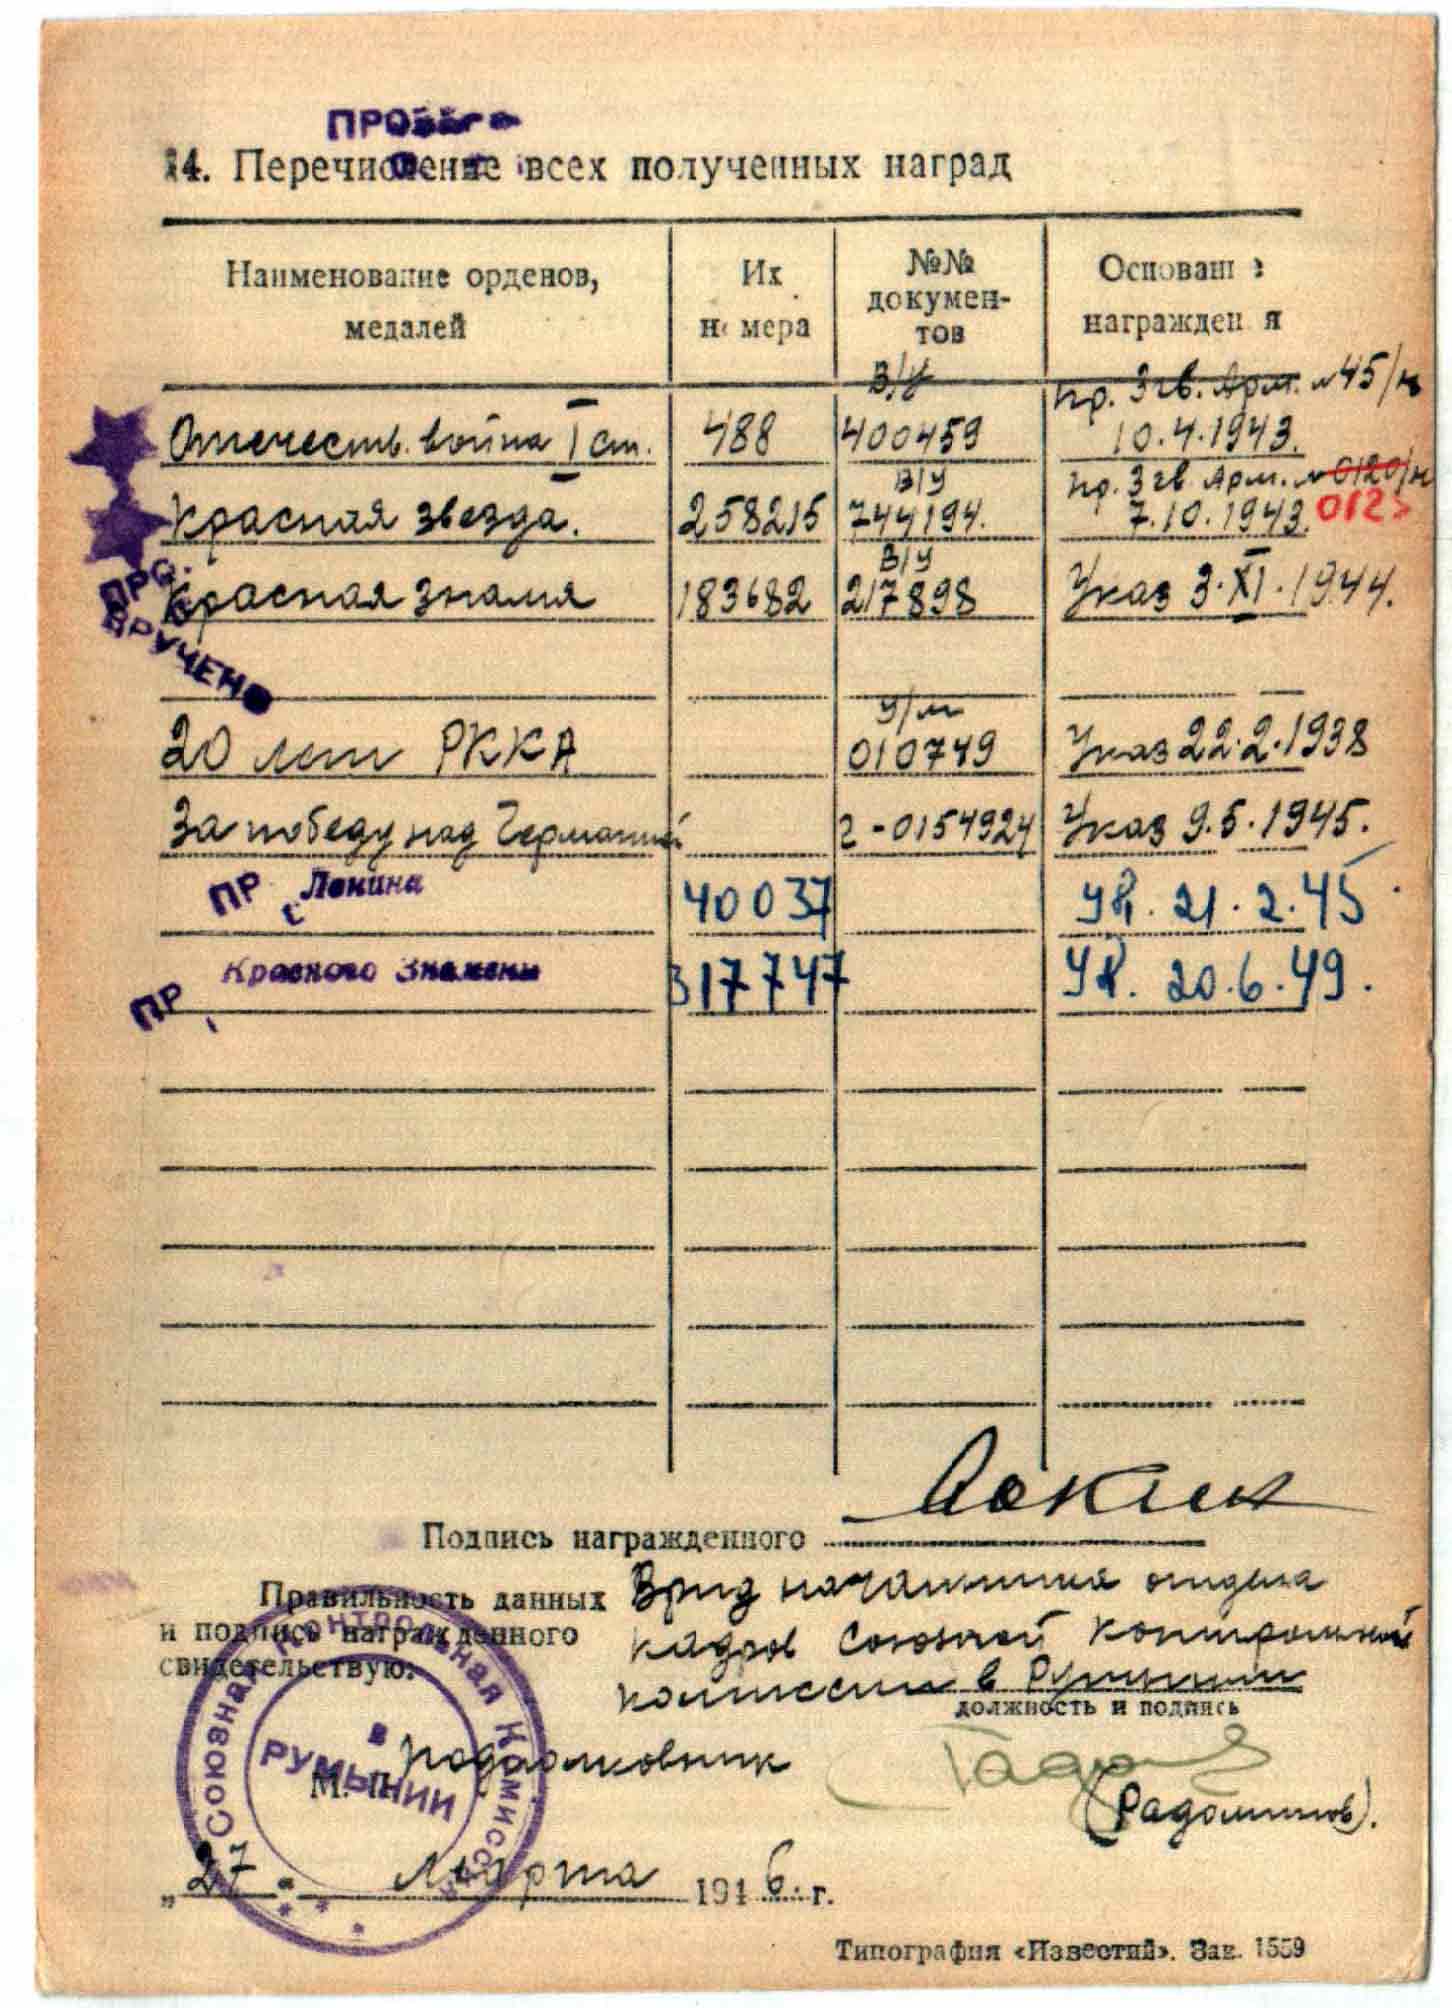 14. Перечисление всех полученных наград
Наименование орденов, медалей
Их номера
№№ документов
Основание награждения
В/у пр. 3 гв. Арм. №45/н
Отечеств. война I ст. 488 400459 10.4.1943.
В/у пр. 3 гв. Арм. № 0120/н
Красная звезда. 258215 744194. 7.10.1943. 012
В/у
Красная знамя 183682 217898 Указ 3.XI.1944.
ВРУЧЕНО
У/м
20 лет РККА 010749 Указ 22.2.1938
За победу над Германией 2-0154924 Указ 9.5.1945.
ПР Ленина 40037 Ук. 21.2.45
ПР Красного Знамени 317747 Ук. 20.6.49.
Подпись награжденного
Правильность данных Врид начальника отдела
и подпись награжденного кадров Союзной Контрольной
свидетельствую: комиссии в Румынии
должность и подпись
Союзная Контрольная Комиссия
в
РУМЫНИИ
М. П. подполковник
„27" марта 1946. г.
Типография «Известий». Зак. 1559